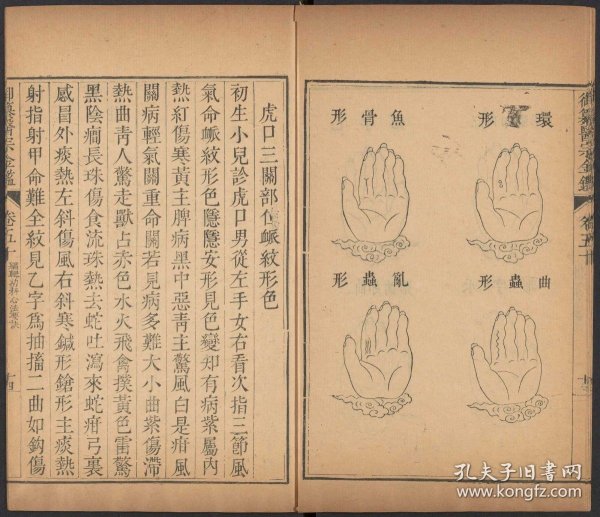 御纂醫宗金鑑
卷五十
環形
魚骨形
曲蟲形
亂蟲形
虎口三關部位衇紋形色
初生小兒診虎口男從左手女右看次指三節風
氣命衇紋形色隱隱安形見色變知有病紫屬內
熱紅傷寒黃主脾病黑中惡青主驚風白是疳風
關病輕氣關重命關若見病多難大小曲紫傷滯
熱曲青人驚走獸占赤色水火飛禽撲黃色雷驚
黑陰癇長珠傷食流珠熱去蛇吐瀉來蛇疳弓裏
感冒外痰熱左斜傷風右斜寒鍼形鎗形主痰熱
射指射甲命難全紋見乙字爲抽搐二曲如鈎傷
御纂醫宗金鑑
卷五十
孔夫子旧書网
www.kongfz.com